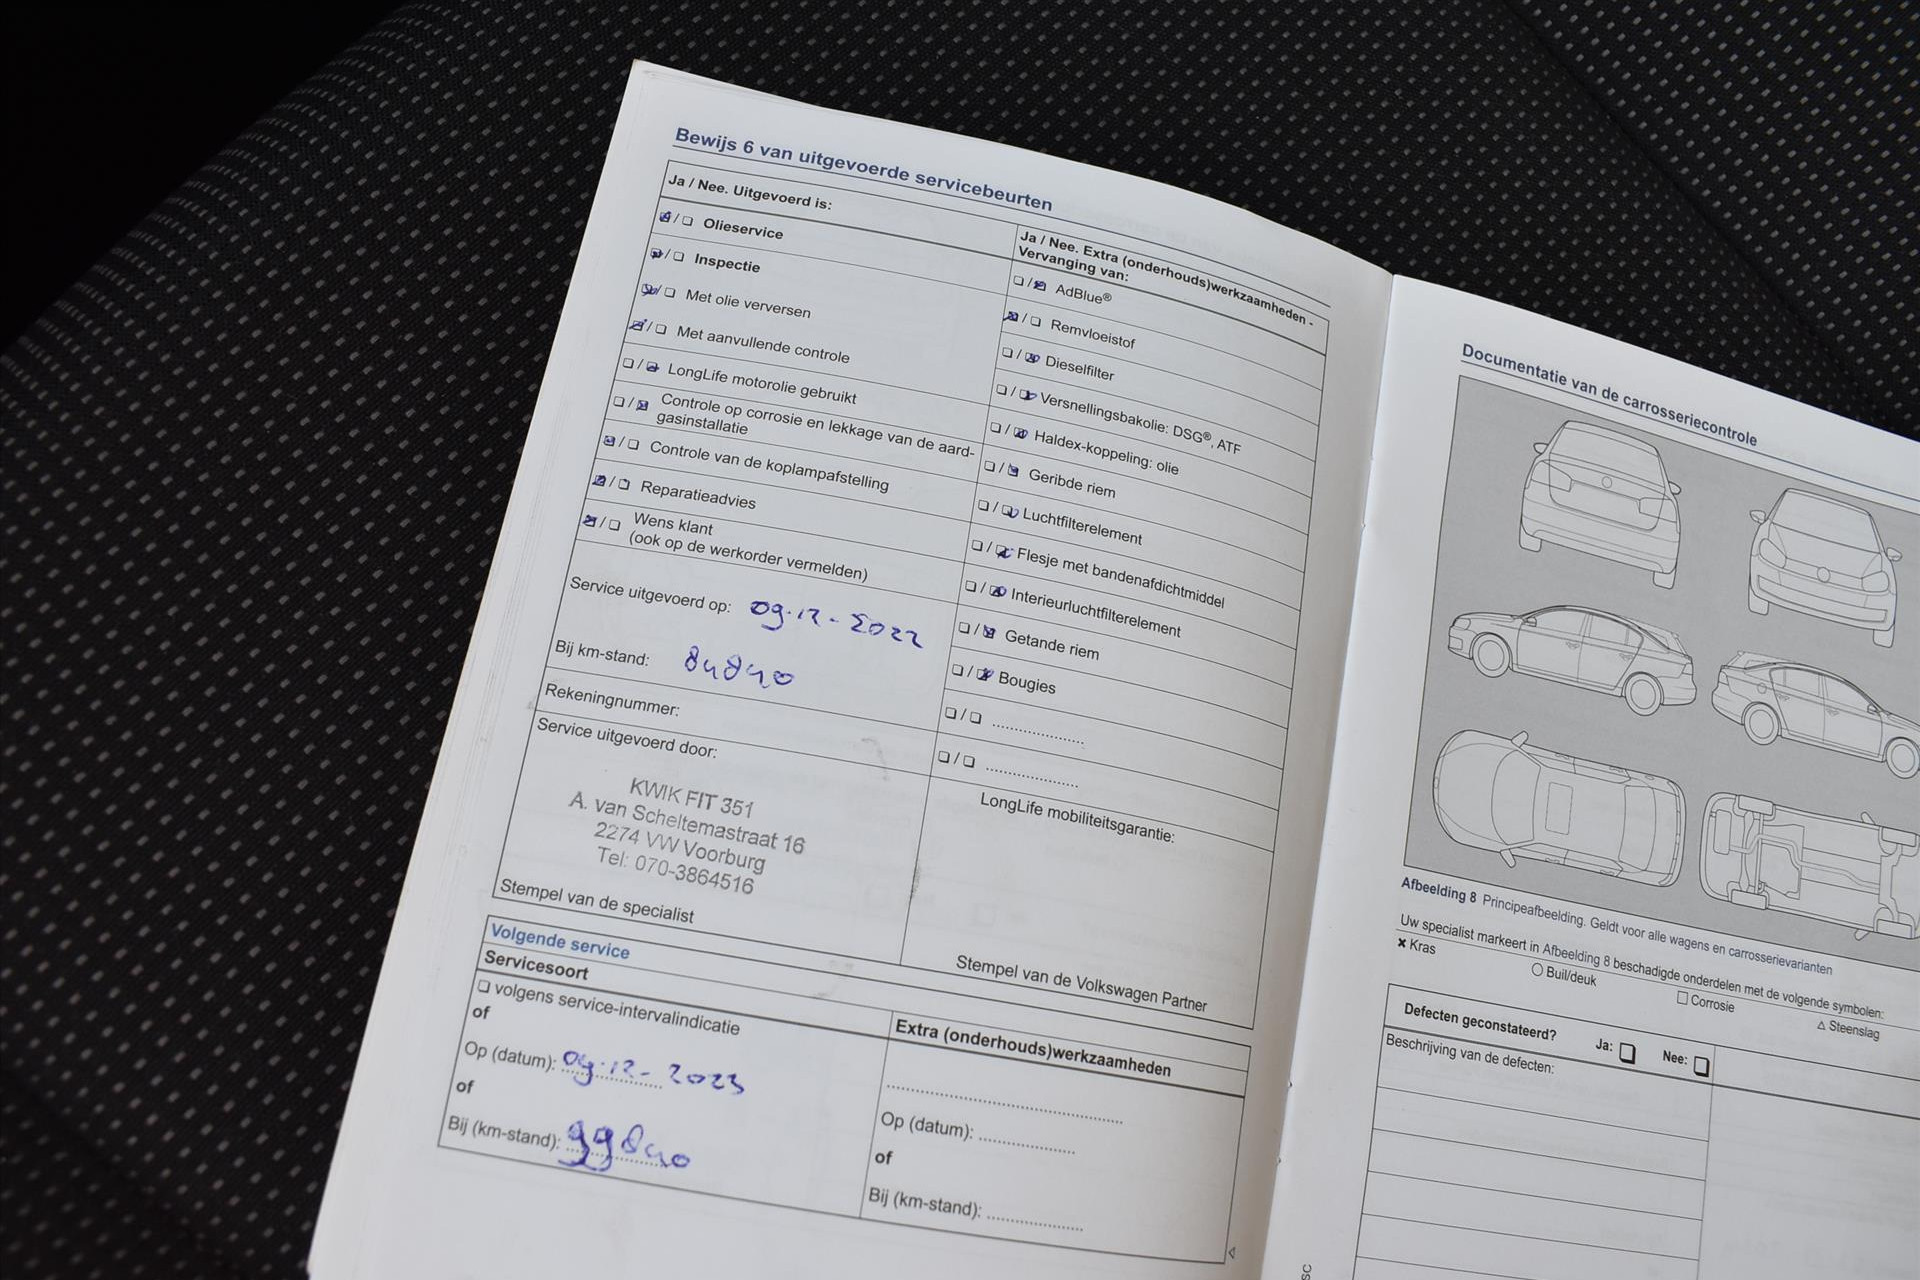 Bewijs 6 van uitgevoerde servicebeurten
Ja / Nee. Uitgevoerd is:
Olieservice
Inspectie
Met olie verversen
Met aanvullende controle
LongLife motorolie gebruikt
Controle op corrosie en lekkage van de aard-
gasinstallatie
Controle van de koplampafstelling
Reparatieadvies
Wens klant
(ook op de werkorder vermelden)
Service uitgevoerd op: 09.12-2022
Bij km-stand: 84840
Rekeningnummer:
Service uitgevoerd door:
KWIK FIT 351
A. van Scheltemastraat 16
2274 VW Voorburg
Tel: 070-3864516
Stempel van de specialist
Ja / Nee. Extra (onderhouds)werkzaamheden -
Vervanging van:
AdBlue®
Remvloeistof
Dieselfilter
Versnellingsbakolie: DSG®, ATF
Haldex-koppeling: olie
Geribde riem
Luchtfilterelement
Flesje met bandenafdichtmiddel
Interieurluchtfilterelement
Getande riem
Bougies
LongLife mobiliteitsgarantie:
Stempel van de Volkswagen Partner
Volgende service
Servicesoort
volgens service-intervalindicatie
of
Op (datum): 09.12-2023
of
Bij (km-stand): 99840
Extra (onderhouds)werkzaamheden
Op (datum):
of
Bij (km-stand):
Documentatie van de carrosseriecontrole
Afbeelding 8 Principeafbeelding. Geldt voor alle wagens en carrosserievarianten
Uw specialist markeert in Afbeelding 8 beschadigde onderdelen met de volgende symbolen:
Kras
Buil/deuk
Corrosie
Steenslag
Defecten geconstateerd? Ja: Nee:
Beschrijving van de defecten: